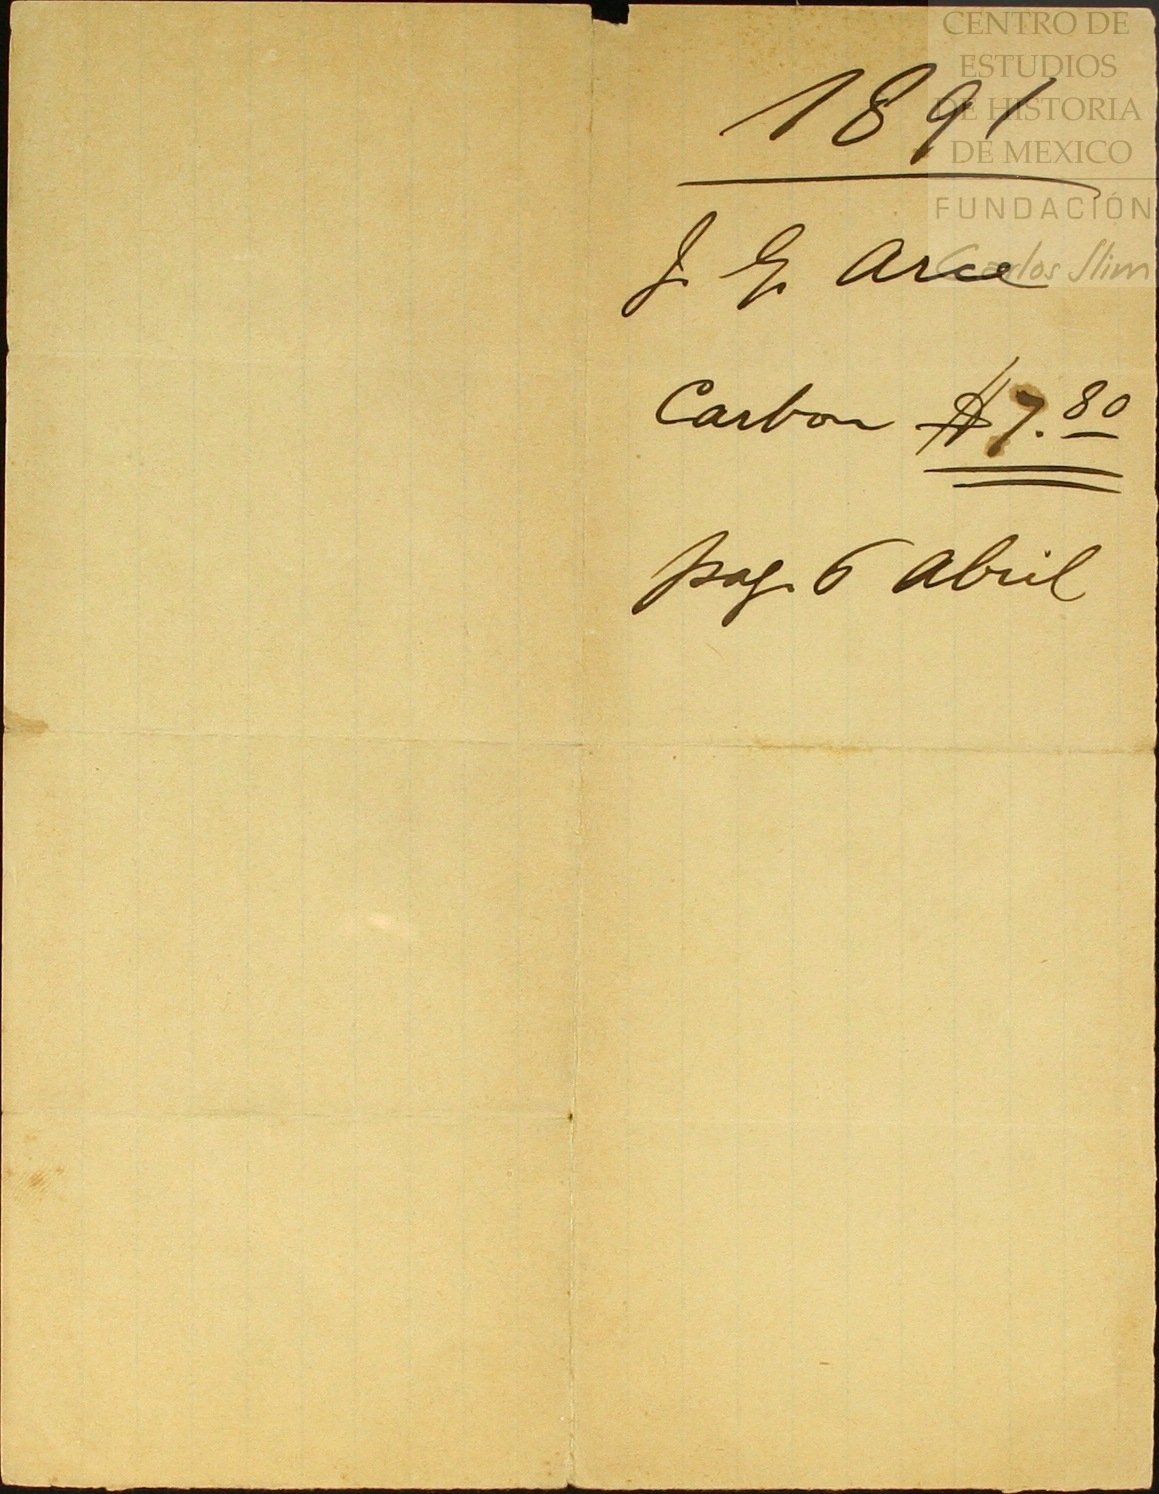 CENTRO DE
ESTUDIOS
DE HISTORIA
DE MEXICO
FUNDACIÓN
Carlos Slim
1891
J. G. Arce
Carbon $7.80
pag. 6 Abril